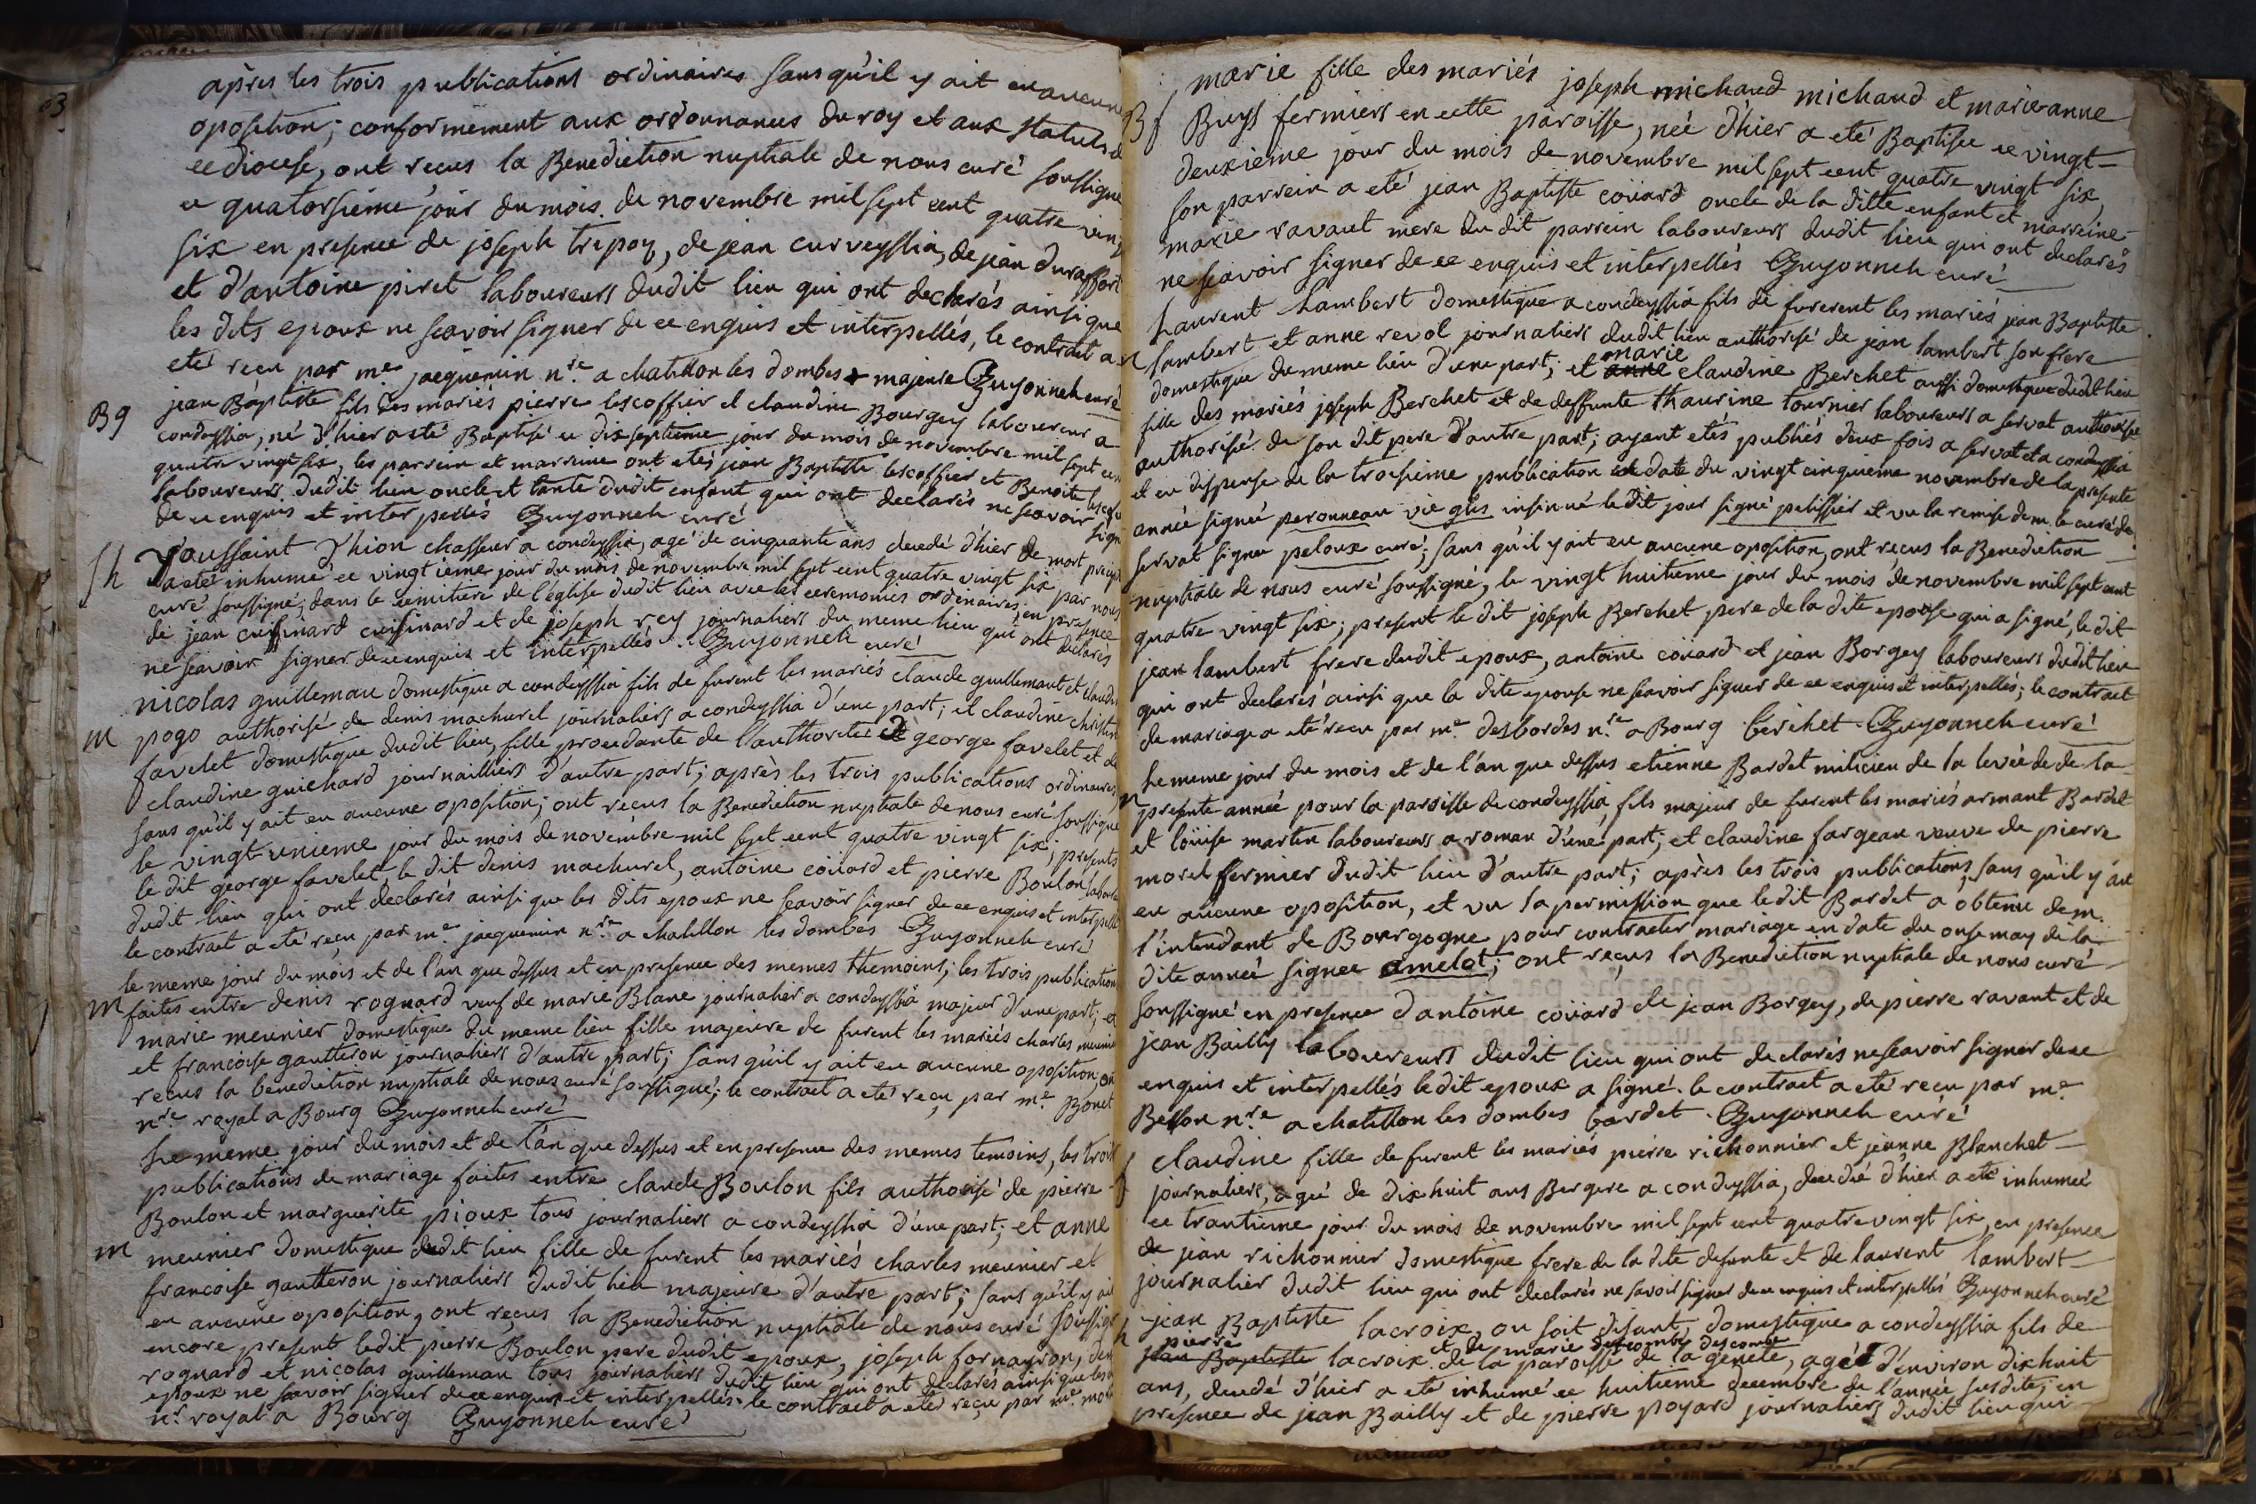 03
après les trois publications ordinaires sans qu'il y ait eu aucune
oposition; conformément aux ordonnances du roy et aux statuts de
ce diocese, ont recus la Benediction nuptiale de nous curé soussigné
ce quatorsieme jour du mois de novembre mil sept cent quatre vingt
six en presence de joseph trepoz, de jean curveyssia, de jean duraffort
et d'antoine piret laboureurs dudit lieu qui ont declarés ainsi que
les dits epoux ne scavoir signer de ce enquis et interpellés, le contract a
eté recu par me jacquemin nre a chatillon les dombes majeure Guyonneh curé
Bg jean Baptiste fils des mariés pierre lescoffier et claudine Bourgey laboureur a
condeyssia, né d'hier a eté Baptisé ce disseptieme jour du mois de novembre mil sept cent
quatre vingt six, les parrein et marreine ont etés jean Baptiste lescoffier et Benoite
laboureurs dudit lieu oncle et tante dudit enfant qui ont declarés ne scavoir signer
de ce enquis et interpellés Guyonneh curé
sh Toussaint d'hion chasseur a condeyssia, agé de cinquante ans decedé d'hier de mort
a eté inhumé ce vingtieme jour du mois de novembre mil sept cent quatre vingt six par nous
curé soussigné; dans le cemitiere de l'église dudit lieu avec les ceremonies ordinaires; en presence
de jean cuisinard cuisinard et de joseph rey journaliers du meme lieu qui ont declarés
ne scavoir signer de ce enquis et interpellés. Guyonneh curé
nicolas guillemau domestique a condeyssia fils de furent les mariés claude guillemaut et claudine
m pogo authorisé de denis machurel journaliers a condeyssia d'une part; et claudine christine
favelet domestique dudit lieu, fille procedante de l'authorité de george favelet et de
claudine guichard journailliers d'autre part; après les trois publications ordinaires,
sans qu'il y ait eu aucune oposition; ont recus la Benediction nuptiale de nous curé soussigné
le vingt-unieme jour du mois de novembre mil sept cent quatre vingt six; presents
le dit george favelet, le dit denis machurel, antoine coüard et pierre Boulon
dudit lieu qui ont declarés ainsi que les dits epoux ne scavoir signer de ce enquis et interpellés
le contract a eté reçu par me jacquemin nre a chatillon les dombes Guyonneh curé
le meme jour du mois et de l'an que dessus et en presence des memes themoins; les trois publications
m faites entre denis rognard veuf de marie Blanc journalier a condeyssia majeur d'une part; et
marie meunier domestique du meme lieu fille majeure de furent les mariés charles meunier
et francoise gautteron journaliers d'autre part; sans qu'il y ait eu aucune oposition; ont
recus la benediction nuptiale de nous curé soussigné; le contract a eté reçu par me Bonet
nre royal a Bourg Guyonneh curé
Le meme jour du mois et de l'an que dessus et en presence des memes temoins, les trois
publications de mariage faites entre claude Boulon fils authorisé de pierre
Boulon et marguerite pioux tous journaliers a condeyssia d'une part; et anne
m meunier domestique dudit lieu fille de furent les mariés charles meunier et
francoise gautteron journaliers dudit lieu majeure d'autre part; sans qu'il y ait
eu aucune oposition, ont reçus la Benediction nuptiale de nous curé soussigné
encore present ledit pierre Boulon pere dudit epoux, joseph fornayron, denis
rognard et nicolas guilleman tous journaliers dudit lieu qui ont declarés ainsi que les
epoux ne savoir signer de ce enquis et interpellés. le contract a eté reçu par me
nr royal a Bourg Guyonneh curé
marie fille des mariés joseph michaud michaud et marieanne
Bf Buys fermiers en cette paroisse, née d'hier a eté Baptisée ce vingt-
deuxieme jour du mois de novembre mil sept cent quatre vingt six,
son parrein a eté jean Baptiste coüard oncle de la ditte enfant et marreine
marie ravaut mere du dit parrein laboureurs dudit lieu qui ont declarés
ne scavoir signer de ce enquis et interpellés Guyonneh curé
Laurent Lambert domestique a condeyssia fils de furerent les mariés jean Baptiste
lambert et anne revol journaliers dudit lieu authorisé de jean lambert son frere
marie
domestique du meme lieu d'une part; et anne claudine Berchet aussi domestique dudit lieu
fille des mariés joseph Berchet et de deffunte thaurine tournier laboureurs a servat authorisée
authorisée de son dit pere d'autre part; ayant etés publiés deux fois a servat et a condeyssia
et eu dispense de la troisieme publication en date du vingt cinquieme novembre de la presente
année signée peronneau vic gles insinué le dit jour signé pelissier et vu la remise de m. le curé de
servat signée peloux curé; sans qu'il y ait eu aucune oposition, ont reçus la Benediction
nuptiale de nous curé soussigné, le vingt huitieme jour du mois de novembre mil sept cent
quatre vingt six; present le dit joseph Berchet pere de la dite epouse qui a signé, le dit
jean lambert frere dudit epoux, antoine coüard et jean Borgey laboureurs dudit lieu
qui ont declarés ainsi que la dite epouse ne scavoir signer de ce enquis et interpellés; le contract
de mariage a eté reçu par me desbordes nre a Bourg berchet Guyonneh curé
Le meme jour du mois et de l'an que dessus etienne Bardet milicien de la levée de de la
presente année pour la paroisse de condeyssia, fils majeur de furent les mariés armant Bardet
et loüise martin laboureurs a roman d'une part; et claudine fargeau veuve de pierre
morel fermier dudit lieu d'autre part; après les trois publications, sans qu'il y ait
eu aucune oposition, et vu la permission que ledit Bardet a obtenu de m.
l'intendant de Bourgogne pour contracter mariage en date du onse may de la
dite année signée amelot; ont reçus la Benediction nuptiale de nous curé
soussigné en presence d'antoine coüard de jean Borgey, de pierre ravant et de
jean Bailly laboureurs dudit lieu qui ont declarés ne scavoir signer de ce
enquis et interpellés ledit epoux a signé. le contract a eté recu par me
Bellon nre a chatillon les dombes bardet Guyonneh curé
claudine fille de furent les mariés pierre richonnier et jeanne Blanchet
journaliers, agée de dix huit ans Bergere a condeyssia, decedée d'hier a eté inhumée
ce trantieme jour du mois de novembre mil sept cent quatre vingt six, en presence
de jean richonnier domestique frere de la dite defunte et de laurent lambert
journalier dudit lieu qui ont declarés ne savoir signer de ce enquis et interpellés Guyonneh curé
jean Baptiste lacroix, ou soit disant, domestique a condeyssia fils de
pierre et de marie descombe descombe
jean Baptiste lacroix de la paroisse de la genete, agé d'environ dix huit
ans, decedé d'hier a eté inhumé ce huitieme decembre de l'année susdite; en
presence de jean Bailly et de pierre poyard journaliers dudit lieu qui